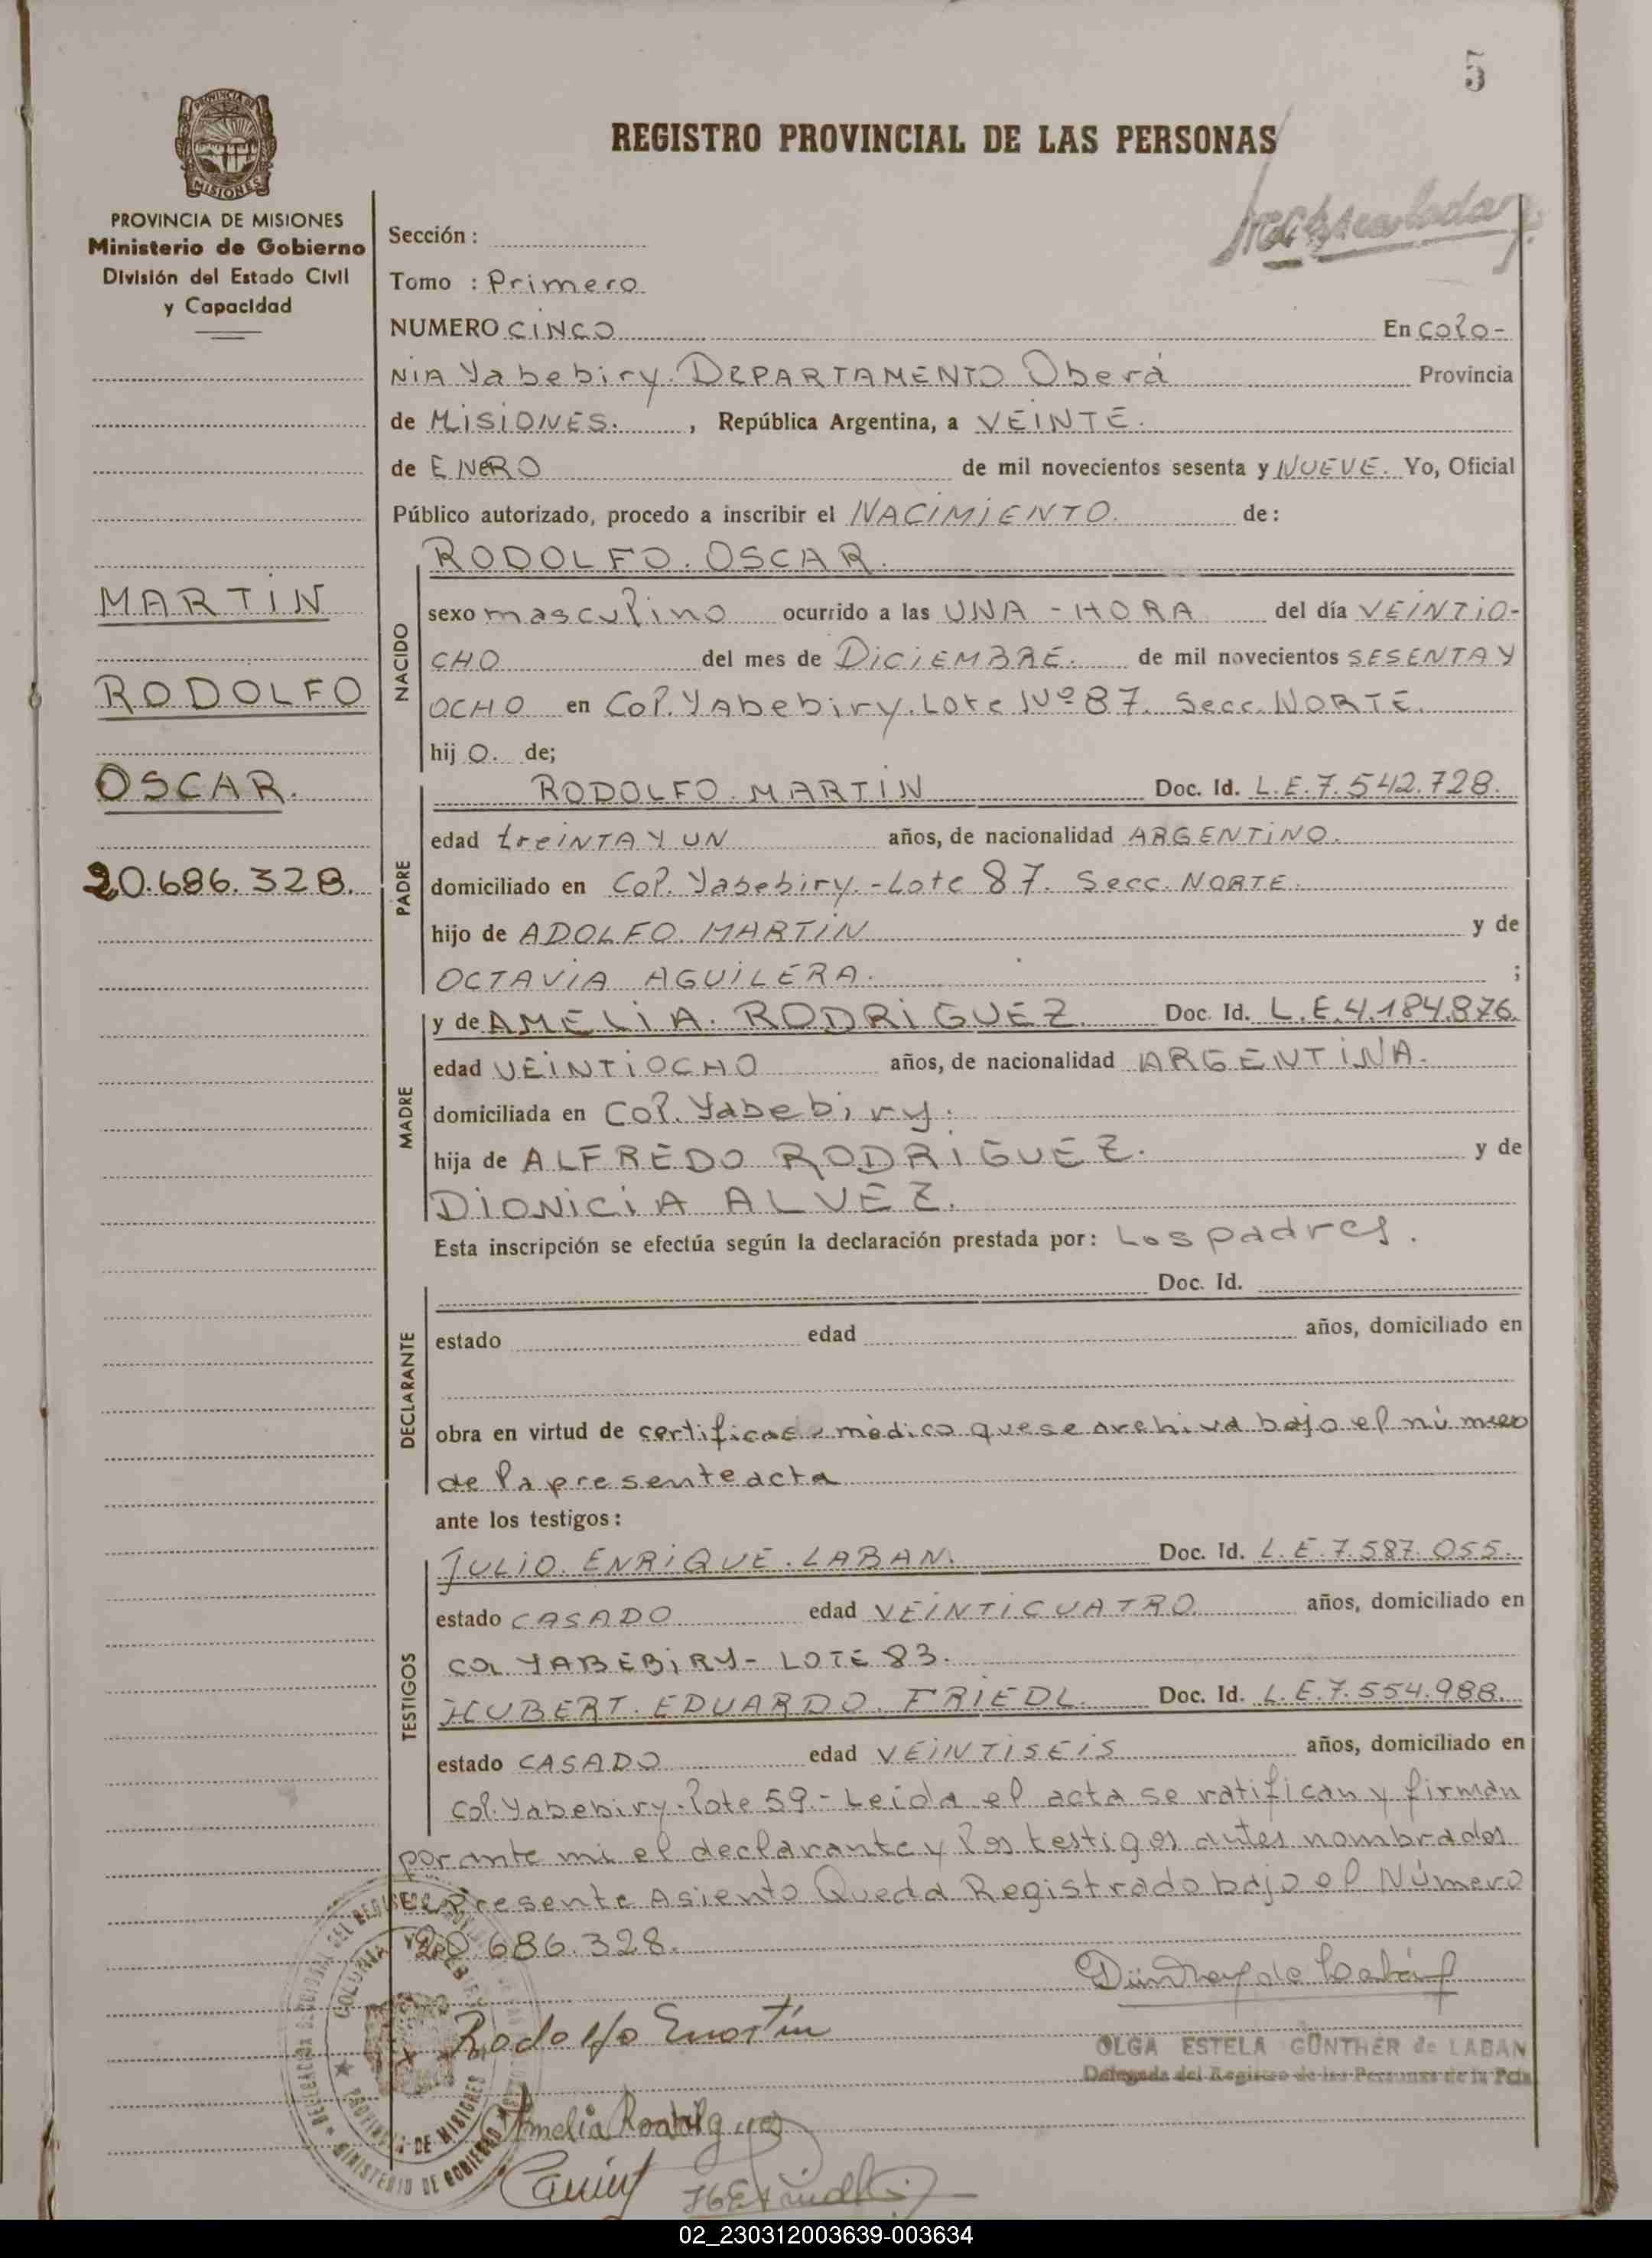 5
REGISTRO PROVINCIAL DE LAS PERSONAS
PROVINCIA DE MISIONES
MISIONES
PROVINCIA DE MISIONES
Ministerio de Gobierno
División del Estado Civil
y Capacidad
MARTIN
RODOLFO
OSCAR.
20.686.328.
Sección :
Tomo : Primero
NUMERO CINCO En COLO-
NIA Yabebiry. DEPARTAMENTO Oberá Provincia
de MISIONES. , República Argentina, a VEINTE.
de ENERO de mil novecientos sesenta y NUEVE. Yo, Oficial
Público autorizado, procedo a inscribir el NACIMIENTO. de:
NACIDO
RODOLFO. OSCAR.
sexo masculino ocurrido a las UNA - HORA del día VEINTIO-
CHO del mes de DICIEMBRE. de mil novecientos SESENTA Y
OCHO en Col. YAbebiry. Lote Nº 87. Secc. NORTE.
hij O. de;
PADRE
RODOLFO. MARTIN Doc. Id. L.E.7.542.728.
edad treINTA Y UN años, de nacionalidad ARGENTINO.
domiciliado en Col. Yabebiry.-Lote 87. Secc. NORTE.
hijo de ADOLFO. MARTIN y de
OCTAVIA AGUILERA. ;
MADRE
y de AMELIA. RODRIGUEZ. Doc. Id. L.E.4.184.876.
edad VEINTIOCHO años, de nacionalidad ARGENTINA.
domiciliada en Col. Yabebiry.
hija de ALFREDO RODRIGUEZ. y de
DIONICIA ALVEZ.
Esta inscripción se efectúa según la declaración prestada por: Los padres.
DECLARANTE
Doc. Id.
estado edad años, domiciliado en
obra en virtud de certificado mèdico que se archiva bajo el número
de la presente acta
ante los testigos:
TESTIGOS
JULIO. ENRIQUE. LABAN. Doc. Id. L.E.7.587.055.
estado CASADO edad VEINTICUATRO. años, domiciliado en
COL YABEBIRY- LOTE 83.
HUBERT. EDUARDO. FRIEDL. Doc. Id. L.E.7.554.988.
estado CASADO edad VEINTISEIS años, domiciliado en
Col. Yabebiry. lote 59.- Leida el acta se ratifican y firman
por ante mi el declarante y los testigos antes nombrados
El Presente Asiento Queda Registrado bajo el Número
20.686.328.
Rodolfo Martin
OLGA ESTELA GÜNTHER de LABAN
Delegada del Registro de las Personas de la Pcia
Amelia Rodriguez
COLONIA YABEBIRY
PROVINCIA DE MISIONES
MINISTERIO DE GOBIERNO
02_230312003639-003634